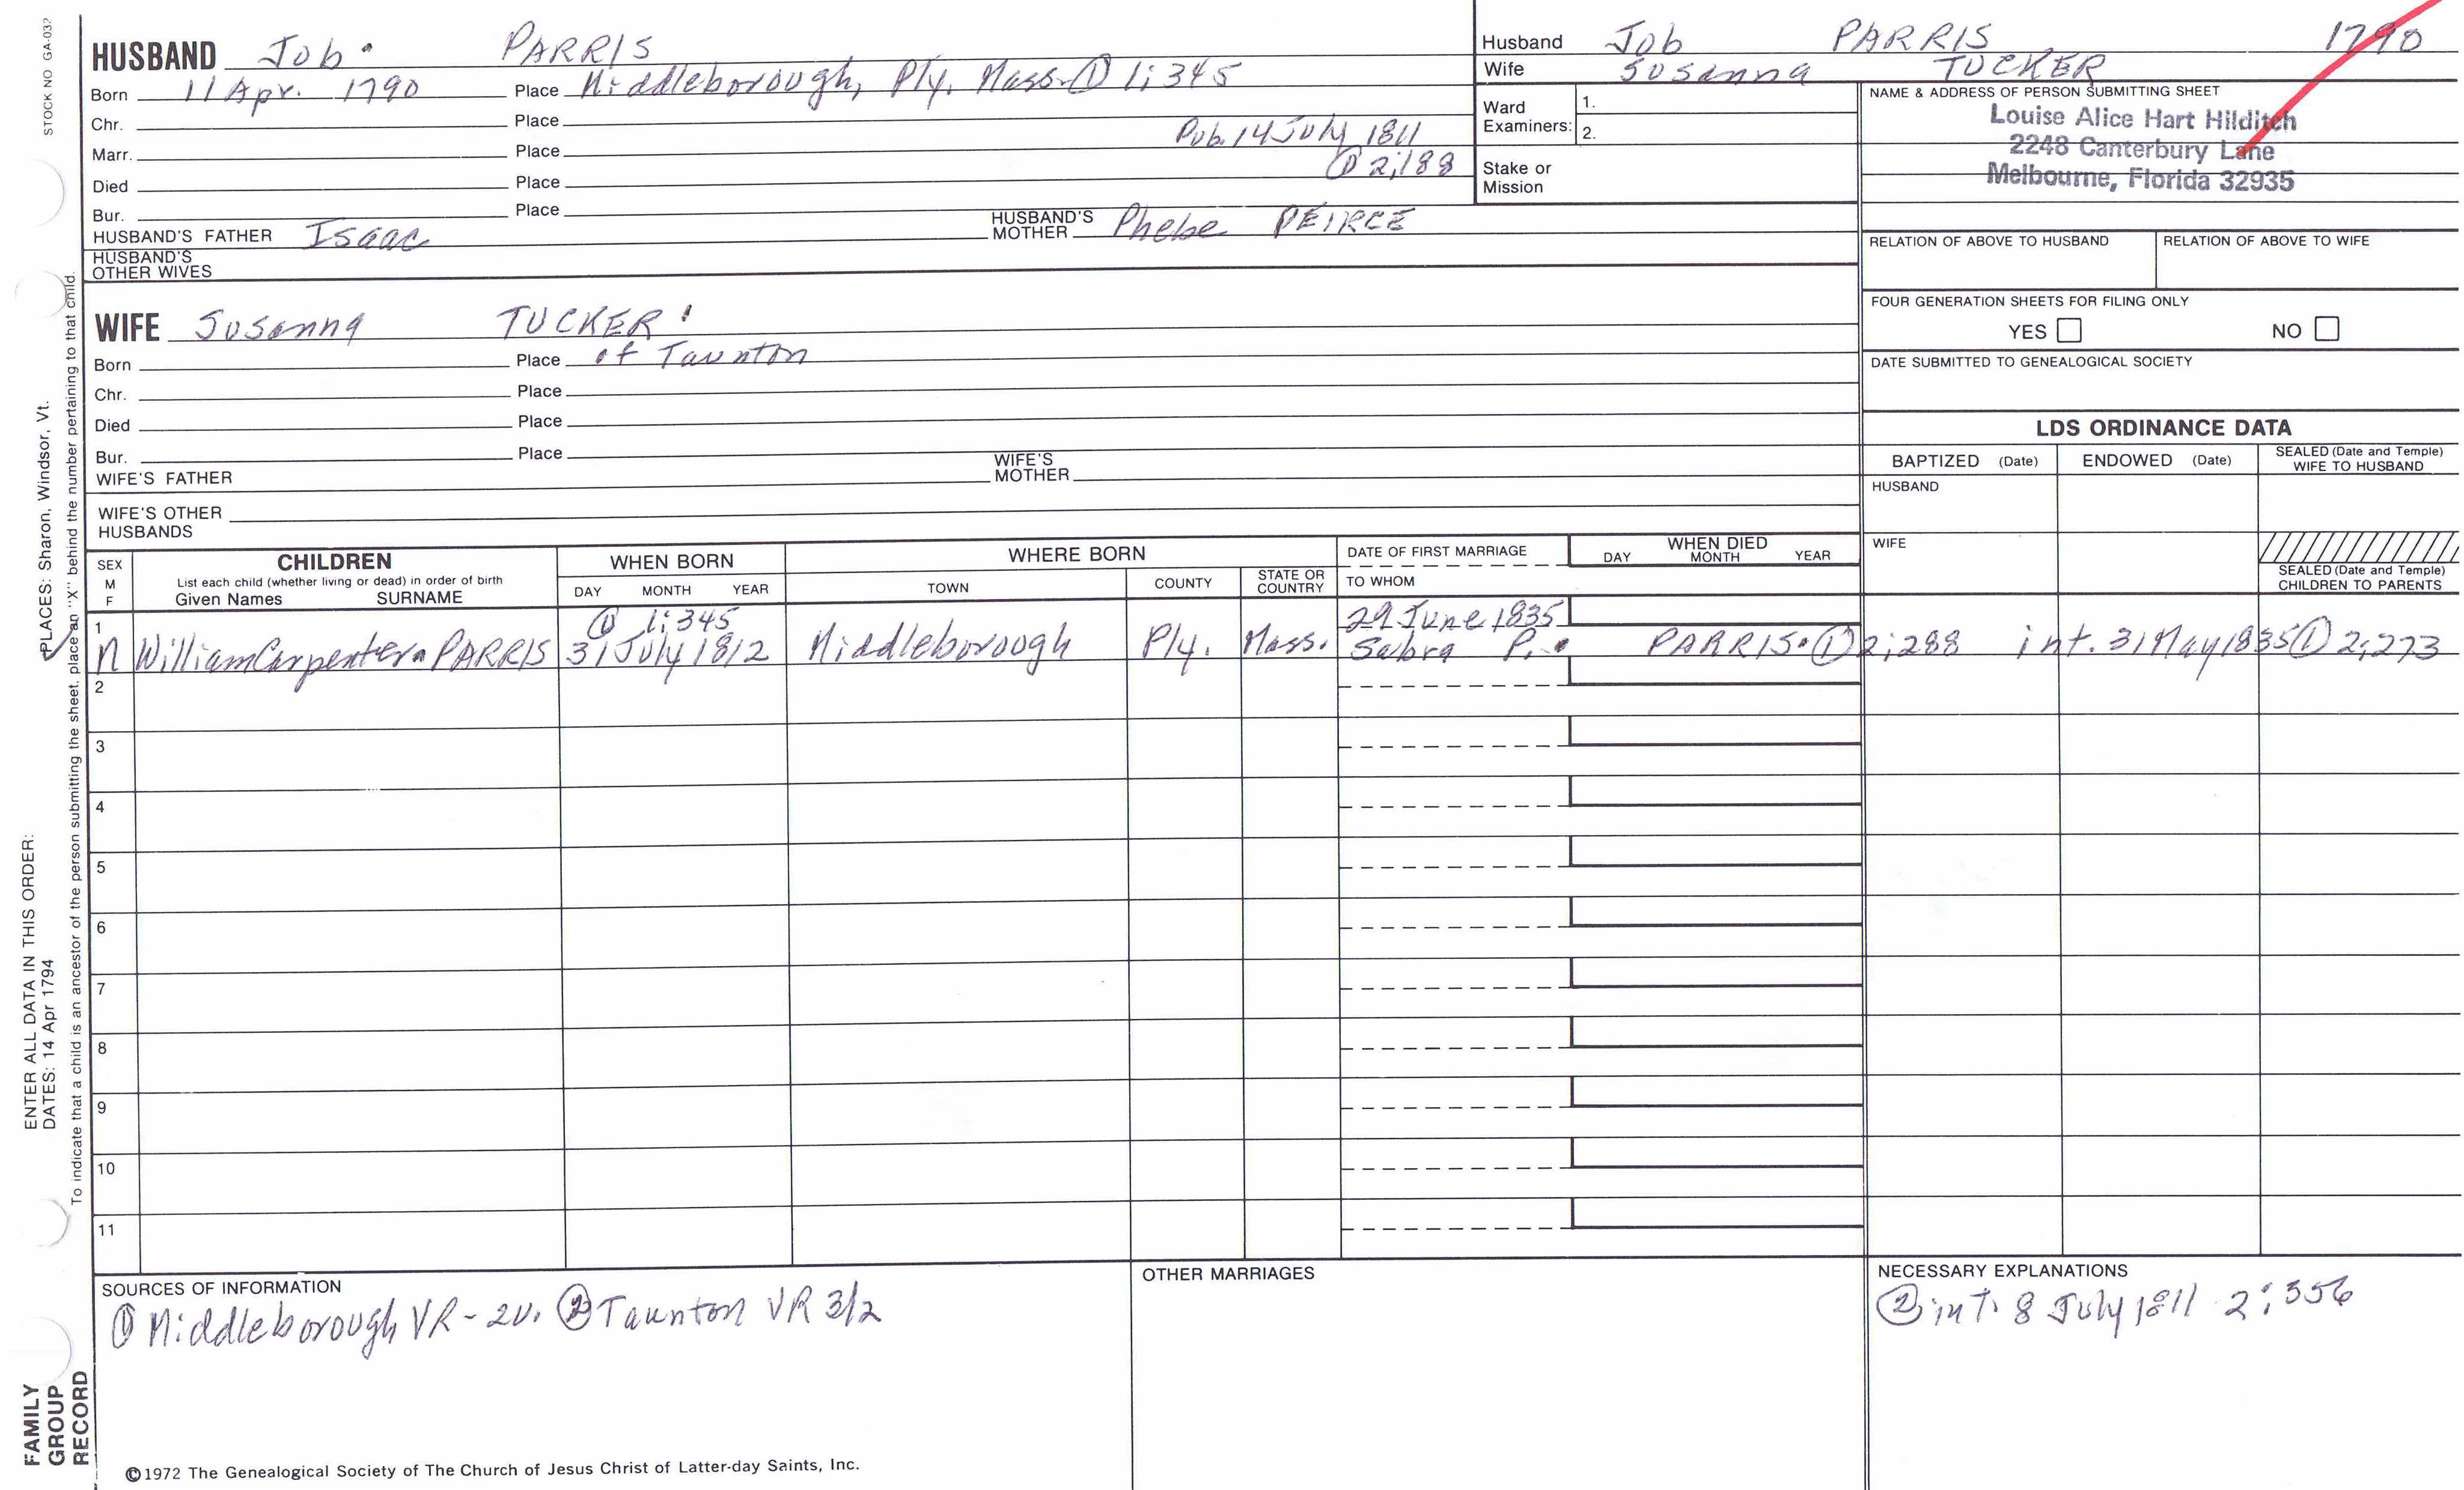 STOCK NO GA-032
HUSBAND Job PARRIS
Born 11 Apr. 1790 Place Middleborough, Ply. Mass. ① 1;345
Chr. Place
Pub. 14 July 1811
Marr. Place
① 2;188
Died Place
Bur. Place
HUSBAND'S FATHER Isaac HUSBAND'S MOTHER Phebe PEIRCE
HUSBAND'S OTHER WIVES
WIFE Susanna TUCKER
Born Place of Taunton
Chr. Place
Died Place
Bur. Place
WIFE'S FATHER WIFE'S MOTHER
WIFE'S OTHER HUSBANDS
Husband Job PARRIS 1790
Wife Susanna TUCKER
Ward Examiners: 1.
2.
Stake or Mission
NAME & ADDRESS OF PERSON SUBMITTING SHEET
Louise Alice Hart Hilditch
2248 Canterbury Lane
Melbourne, Florida 32935
RELATION OF ABOVE TO HUSBAND RELATION OF ABOVE TO WIFE
FOUR GENERATION SHEETS FOR FILING ONLY
YES NO
DATE SUBMITTED TO GENEALOGICAL SOCIETY
LDS ORDINANCE DATA
BAPTIZED (Date) ENDOWED (Date) SEALED (Date and Temple) WIFE TO HUSBAND
HUSBAND
WIFE
SEALED (Date and Temple) CHILDREN TO PARENTS
SEX M F
CHILDREN
List each child (whether living or dead) in order of birth
Given Names SURNAME
WHEN BORN
DAY MONTH YEAR
WHERE BORN
TOWN COUNTY STATE OR COUNTRY
DATE OF FIRST MARRIAGE
TO WHOM
WHEN DIED
DAY MONTH YEAR
① 1;345 29 June 1835
1 M William Carpenter PARRIS 31 July 1812 Middleborough Ply. Mass. Sabra P. PARRIS ① 2;288 int. 31 May 1835 ① 2;273
2
3
4
5
6
7
8
9
10
11
SOURCES OF INFORMATION
① Middleborough VR-2v. ② Taunton VR 3/2
OTHER MARRIAGES
NECESSARY EXPLANATIONS
② int. 8 July 1811 2;356
©1972 The Genealogical Society of The Church of Jesus Christ of Latter-day Saints, Inc.
FAMILY GROUP RECORD
ENTER ALL DATA IN THIS ORDER:
DATES: 14 Apr 1794
PLACES: Sharon, Windsor, Vt.
To indicate that a child is an ancestor of the person submitting the sheet, place an "X" behind the number pertaining to that child.